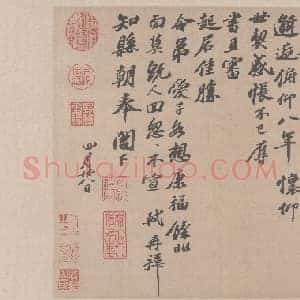 邂逅俯仰八年懷仰
世契感悵不已辱
書且審
起居佳勝
令弟愛子各想康福餘非
面莫既人回忽忽不宣軾再拜
知縣朝奉閣下
四月廿八日